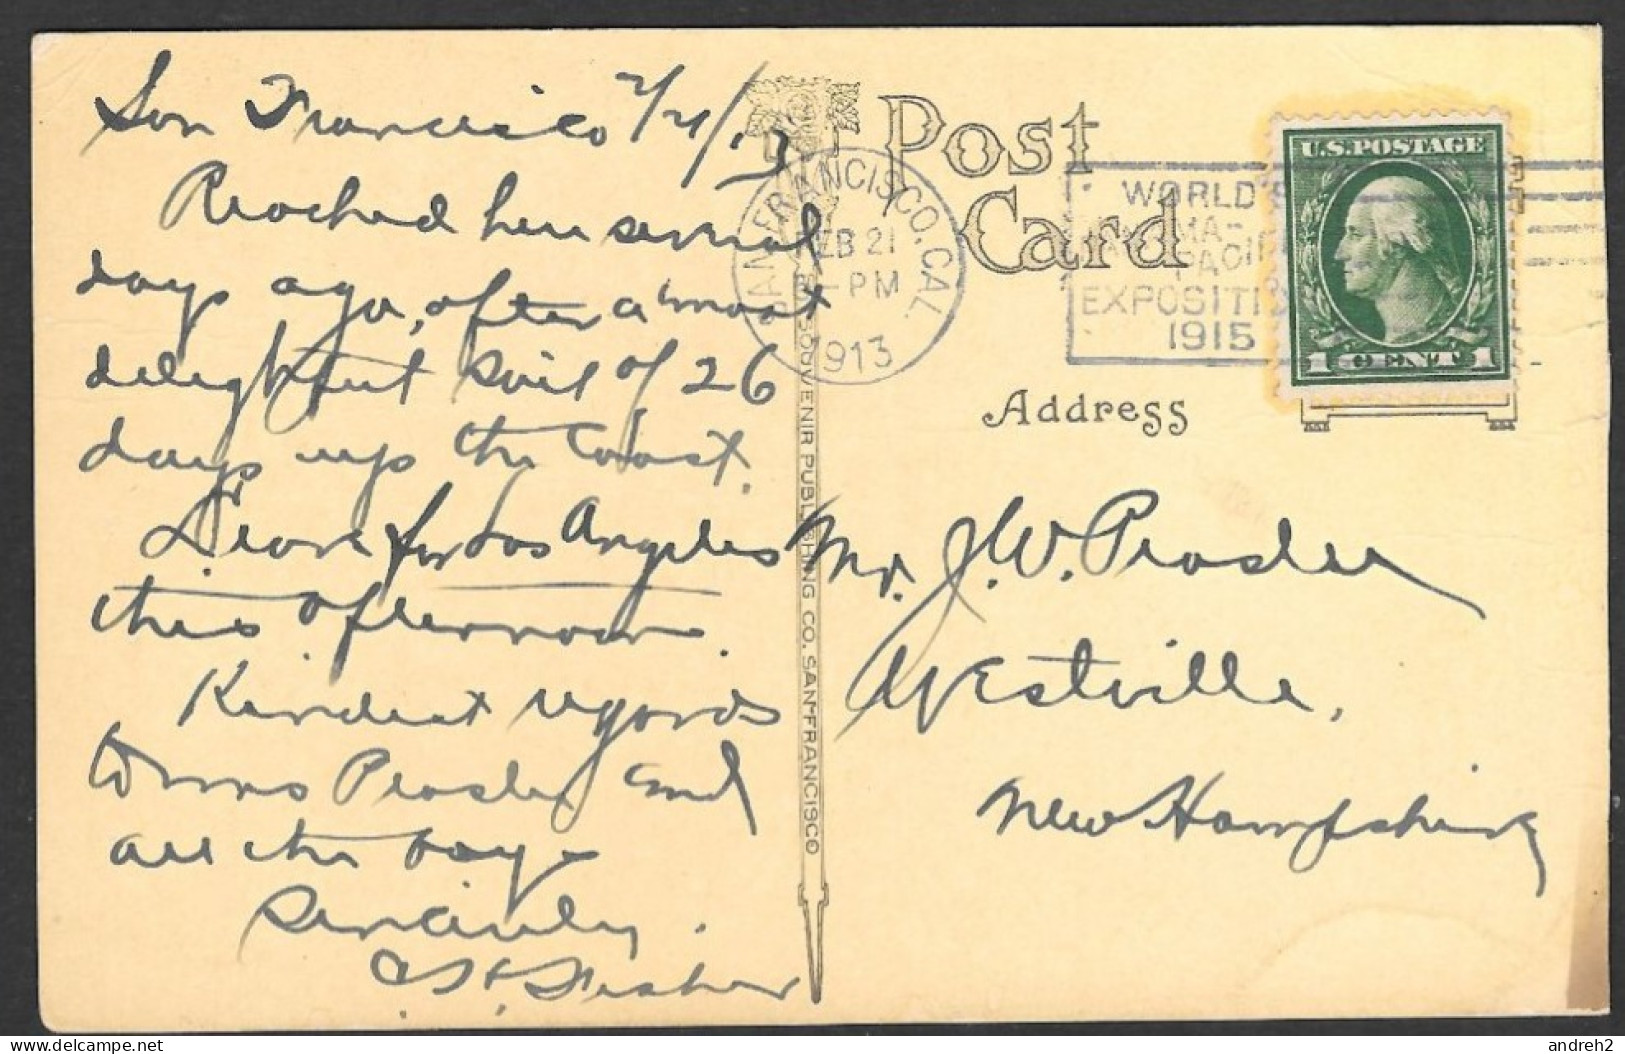 San Francisco 2/21/13
Reached here several
days ago, after a most
delightful sail of 26
days up the coast.
Leave for Los Angeles
this afternoon.
Kindest regards
to Mrs and
all the boys
Sincerely
Fisher
Post
Card
SAN FRANCISCO, CAL.
FEB 21
-PM
1913
WORLD'S
PANAMA-
PACIFIC
EXPOSITION
1915
U.S. POSTAGE
1 CENT 1
Address
SOUVENIR PUBLISHING CO. SAN FRANCISCO
Mr. J. W.
Westville,
New Hampshire
delcampe.net
andreh2